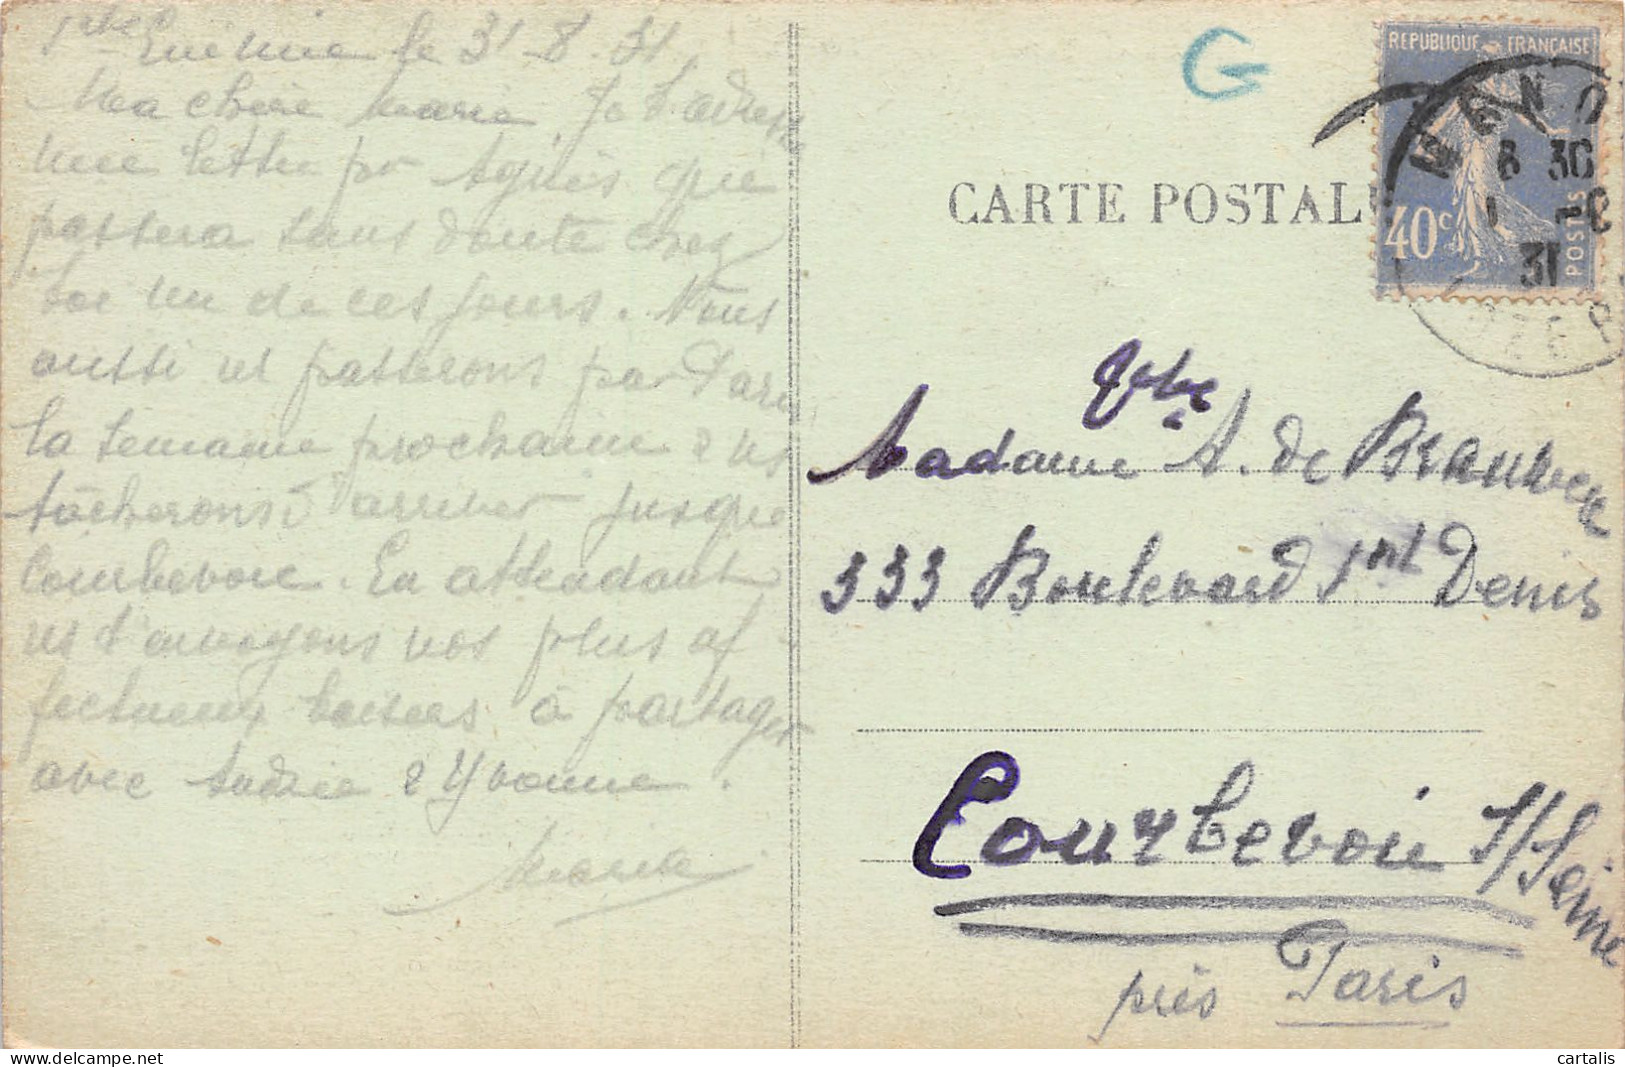 Ste Enimie le 31-8.31
Ma chère Marie, Je t'adresse
une lettre pr Agnès qui
passera sans doute chez
toi un de ces jours. Nous
aussi ns passerons par Paris
la semaine prochaine & ns
tâcherons d'arriver jusque
Courbevoie. En attendant
ns t'envoyons nos plus af-
fectueux baisers à partager
avec Andrée & Yvonne.
G
CARTE POSTALE
REPUBLIQUE FRANÇAISE
40c
POSTES
MEND
6 30
1 -9
31
LOZERE
Madame A. de
333 Boulevard Snt Denis
Courbevoie S/Seine
près Paris
cartalis